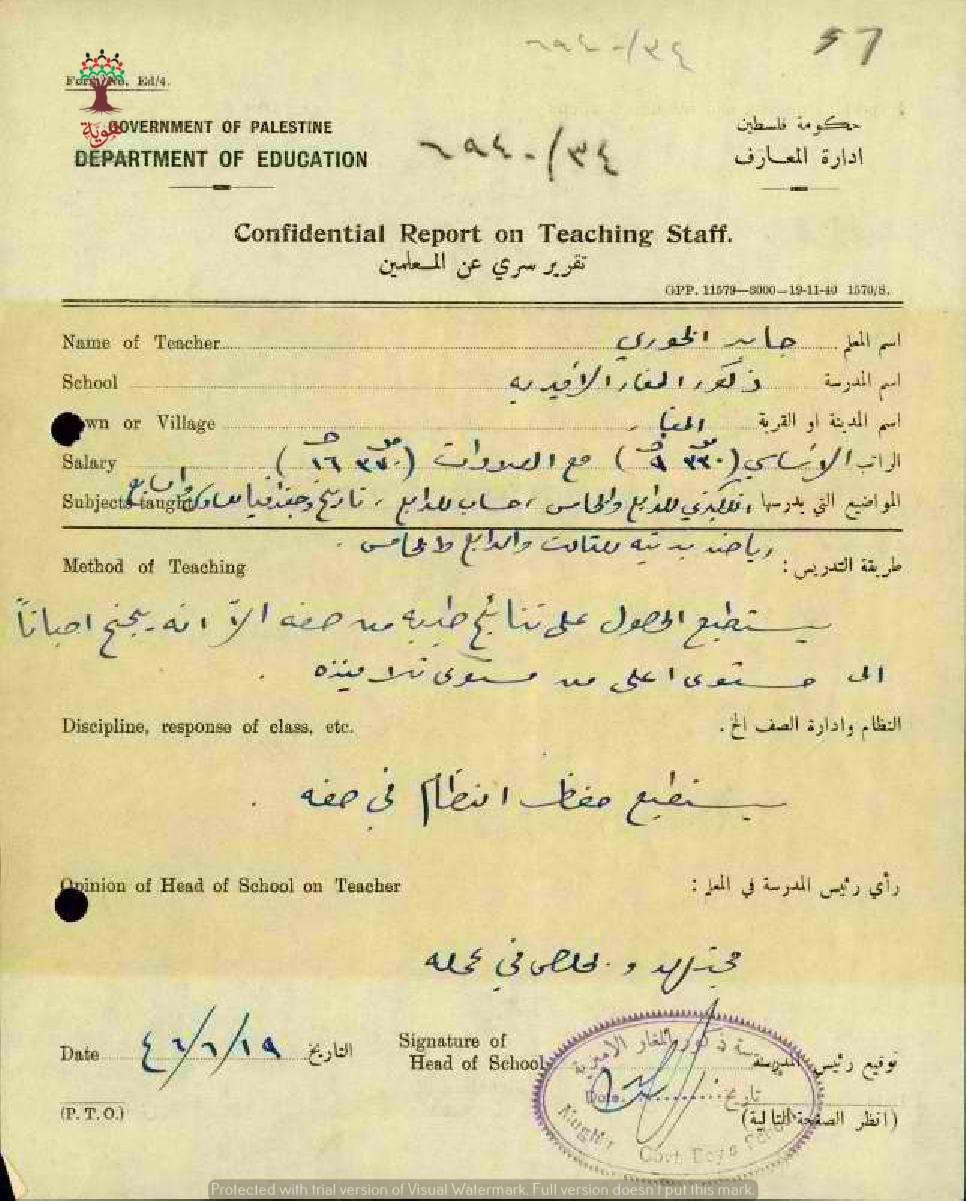 ٦٩٤٠/٣٤
57
Form No. Ed/4.
هوية
GOVERNMENT OF PALESTINE
حكومة فلسطين
DEPARTMENT OF EDUCATION
ادارة المعارف
٦٩٤٠/٣٤
Confidential Report on Teaching Staff.
تقرير سري عن المعلمين
GPP. 11579—3000—19-11-40 1570/S.
Name of Teacher
اسم المعلم الخوري
School
اسم المدرسة ذكور المغار الاميرية
Town or Village
اسم المدينة او القرية المغار
Salary
الراتب الاساسي ( ٩ ٣٣٠ ) مع العلاوات ( ١٦ )
Subjects taught
المواضيع التي يدرسها ، انكليزي للرابع والخامس ، حساب للرابع ، تاريخ وجغرافيا
رياضه بدنيه للثالث والرابع والخامس .
Method of Teaching
طريقة التدريس :
يستطيع الحصول على نتائج طيبه من صفه الاّ انه يجنح احياناً
الى مستوى اعلى من مستوى تلاميذه .
Discipline, response of class, etc.
النظام وادارة الصف الخ .
يستطيع حفظ النظام في صفه .
Opinion of Head of School on Teacher
رأي رئيس المدرسة في المعلم :
مجتهد و مخلص في عمله
Date
التاريخ ١٩/٦/٤٦
Signature of
Head of School
توقيع رئيس المدرسة
مدرسة ذكور المغار الاميرية
Date. تاريخ
Mughar Govt. Boys School
(P. T. O.)
(انظر الصفحة التالية)
Protected with trial version of Visual Watermark. Full version doesn't put this mark.